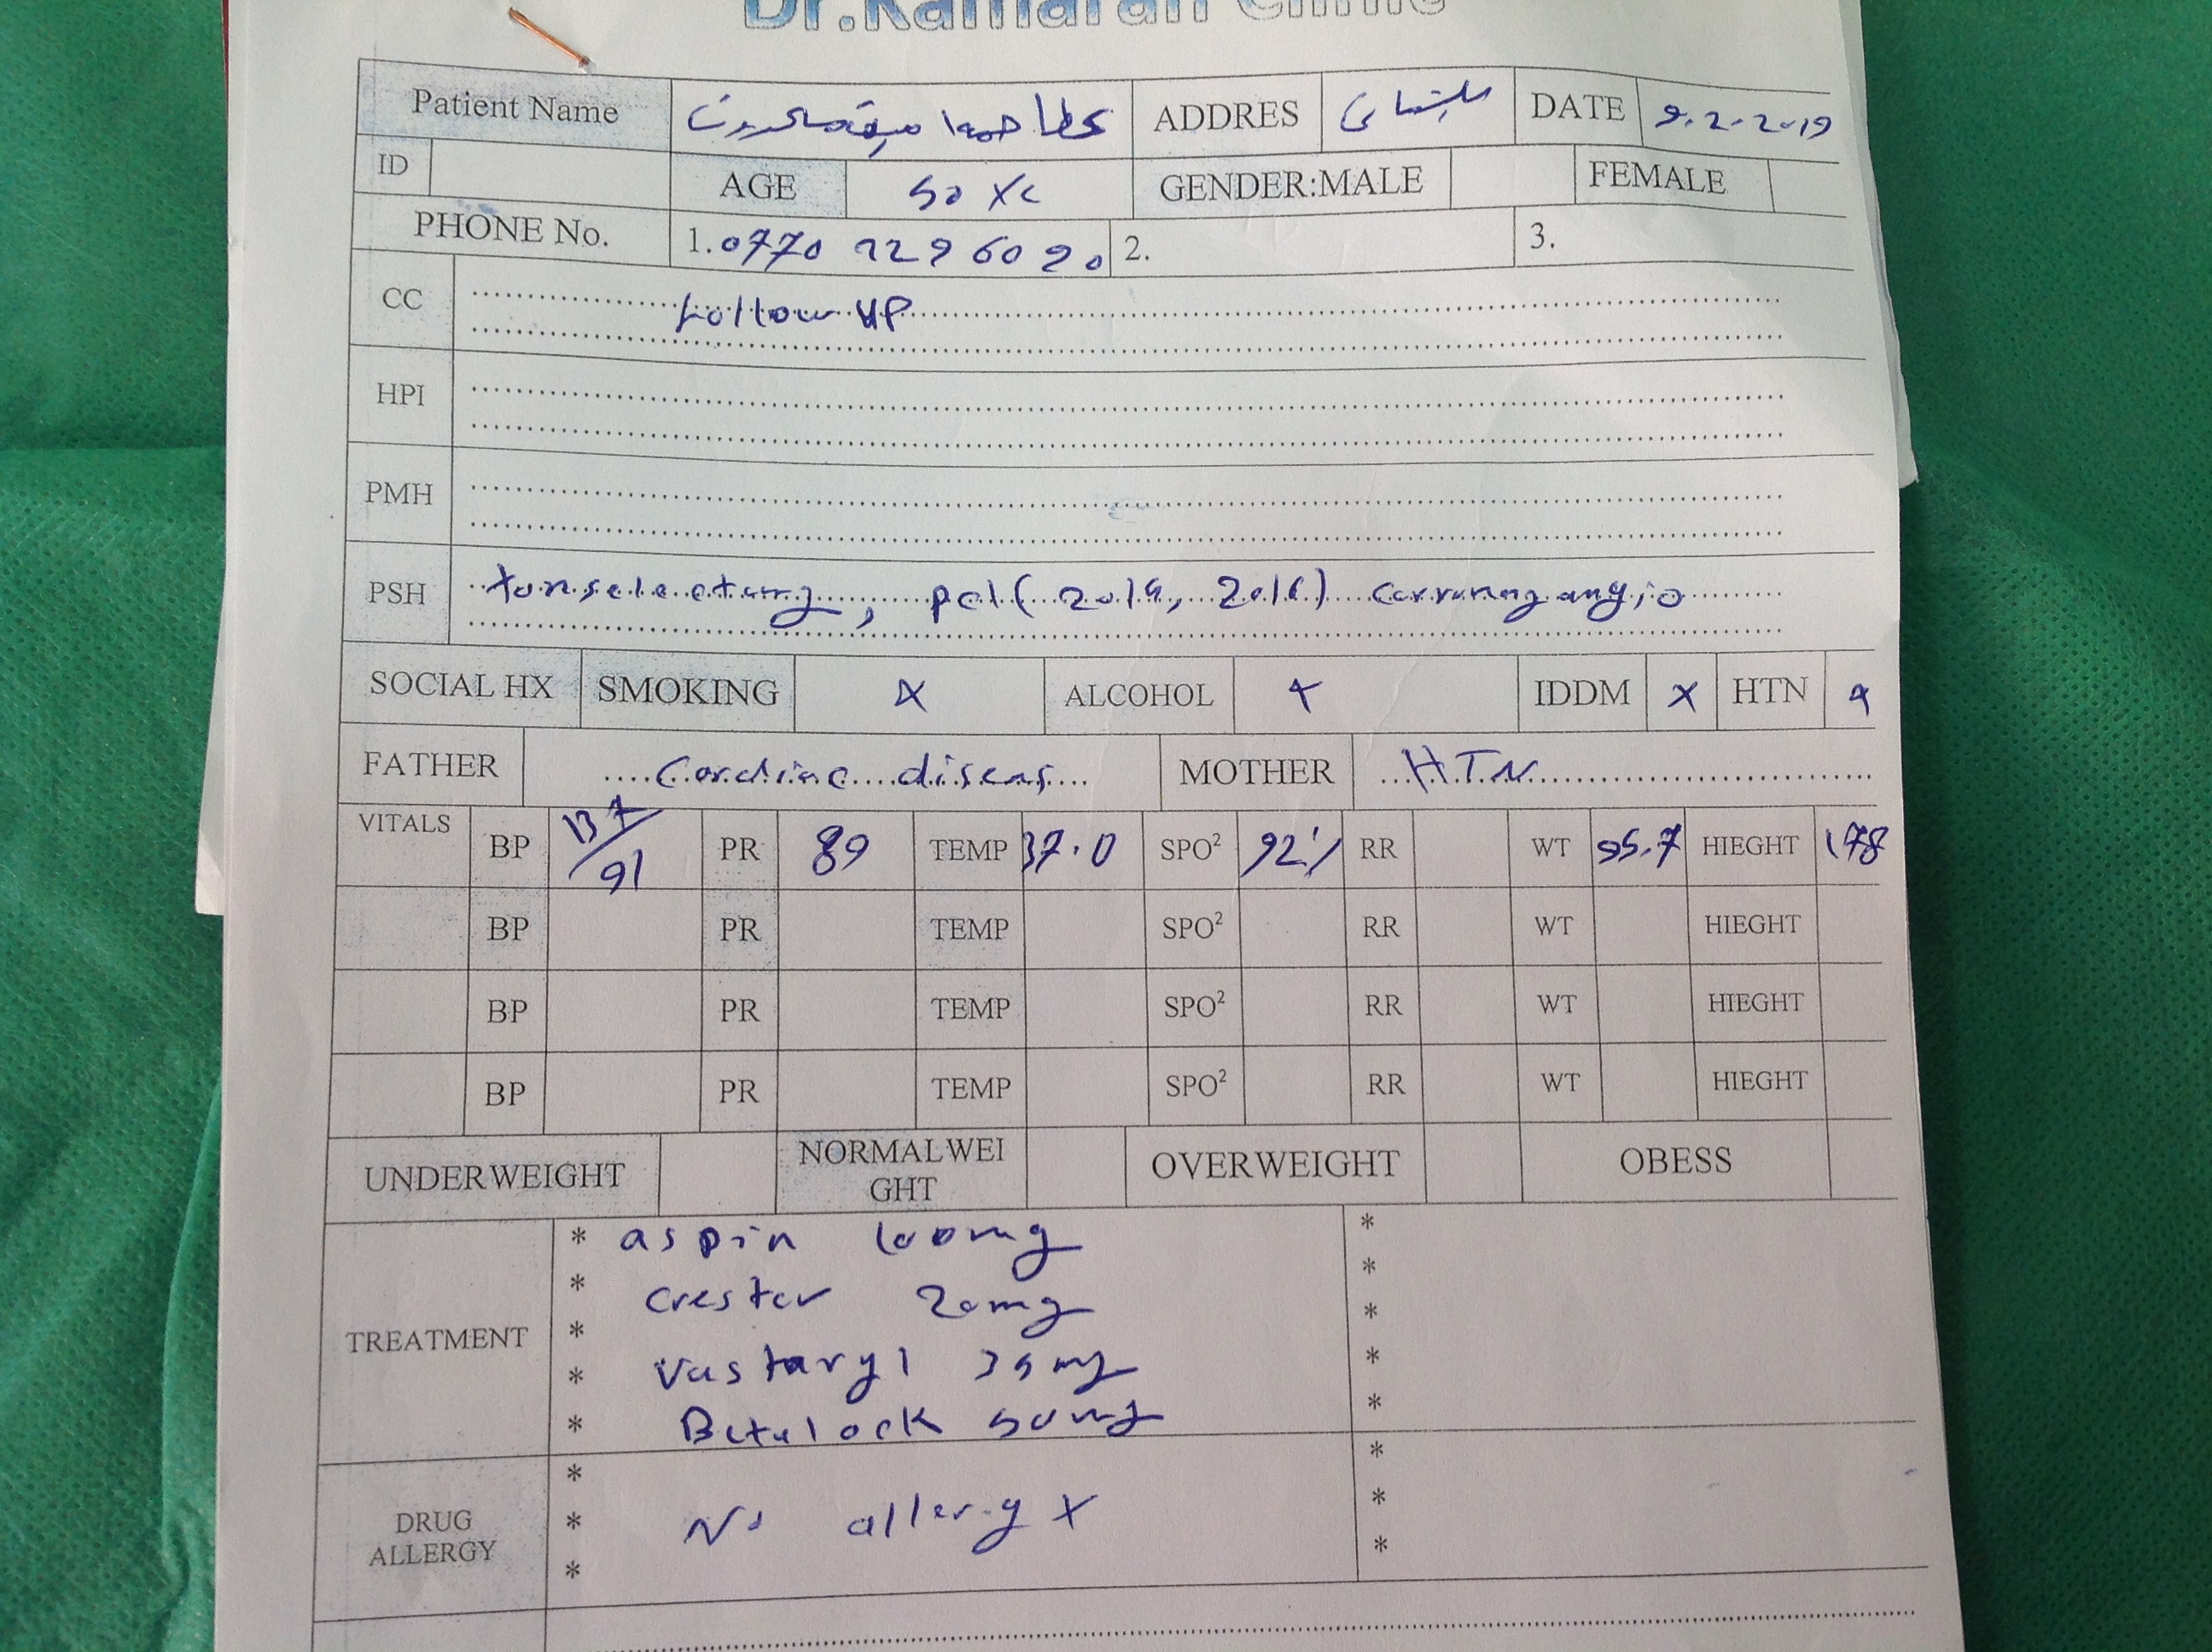 Dr.Kamaran Clinic
Patient Name عطا حمه ADDRES سلێمانی DATE 9.2.2019
ID AGE 50 GENDER:MALE FEMALE
PHONE No. 1. 0770 2. 3.
CC Follow up
HPI
PMH
PSH , pci ( ) angio
SOCIAL HX SMOKING X ALCOHOL IDDM X HTN
FATHER Cardiac diseas MOTHER HTN
VITALS BP 137/91 PR 89 TEMP 37.0 SPO² 92% RR WT HIEGHT 178
BP PR TEMP SPO² RR WT HIEGHT
BP PR TEMP SPO² RR WT HIEGHT
BP PR TEMP SPO² RR WT HIEGHT
UNDERWEIGHT NORMALWEI
GHT OVERWEIGHT OBESS
TREATMENT
* aspin 100mg *
* crestor 20mg *
* vastaryl 35mg *
* Betalock 50mg *
* *
DRUG
ALLERGY
* *
* No allergy X *
* *